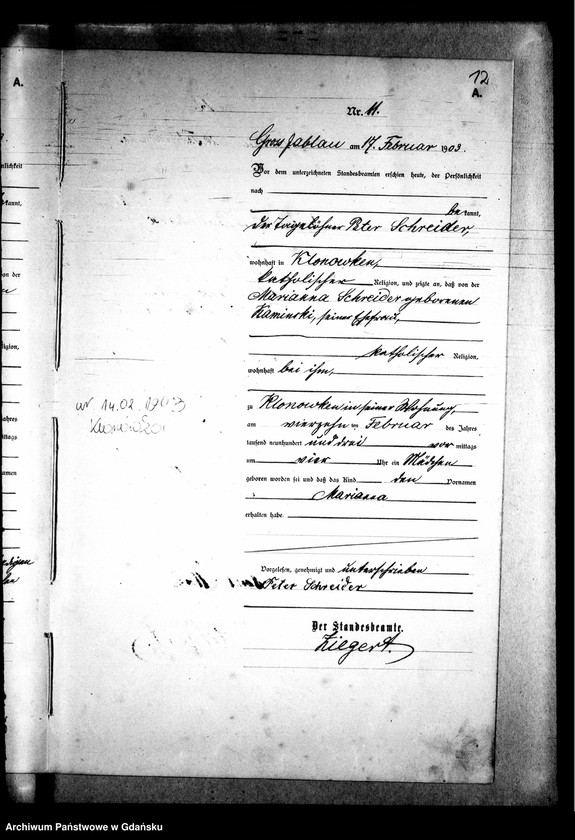 12
A.
A.
Nr. 11.
Gross Jablau am 17. Februar 1903.
Vor dem unterzeichneten Standesbeamten erschien heute, der Persönlichkeit
nach
be kannt,
der Tagelöhner Peter Schreider,
wohnhaft in Klonowken,
katholischer Religion, und zeigte an, daß von der
Marianna Schreider geborenen
Kaminski, seiner Ehefrau,
katholischer Religion,
wohnhaft bei ihm,
zu Klonowken in seiner Wohnung,
am vierzehnten Februar des Jahres
tausend neunhundert und drei vor mittags
um vier Uhr ein Mädchen
geboren worden sei und daß das Kind den Vornamen
Marianna
erhalten habe.
ur. 14.02.1903
Vorgelesen, genehmigt und unterschrieben
Peter Schreider
Der Standesbeamte.
Ziegert.
Archiwum Państwowe w Gdańsku